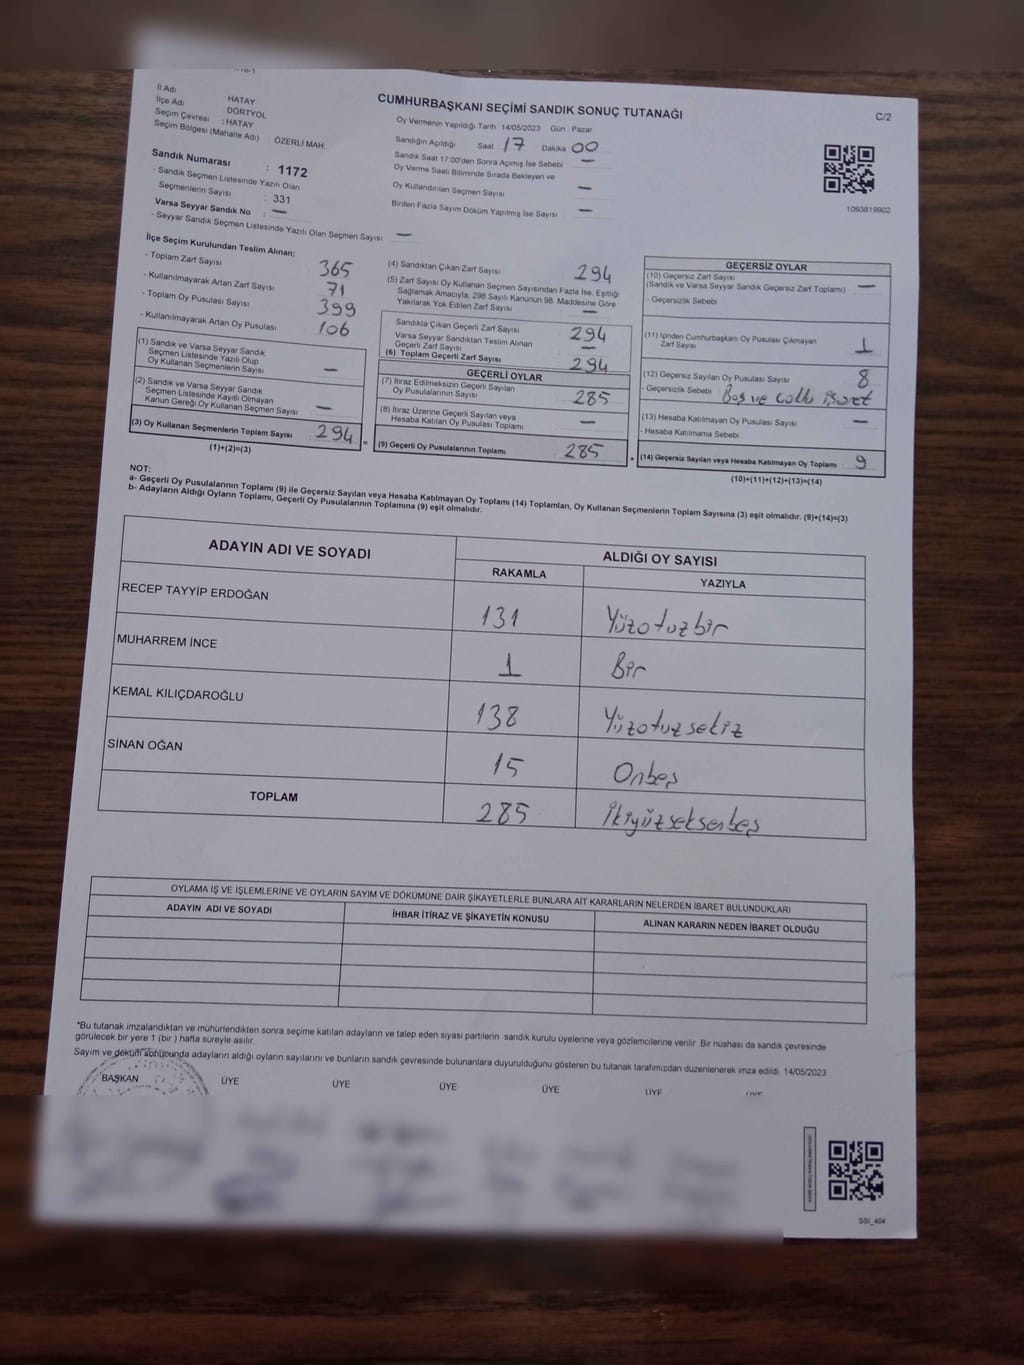 İl Adı : HATAY
İlçe Adı : DÖRTYOL
Seçim Çevresi : HATAY
Seçim Bölgesi (Mahalle Adı) : ÖZERLİ MAH.
Sandık Numarası : 1172
- Sandık Seçmen Listesinde Yazılı Olan
Seçmenlerin Sayısı : 331
Varsa Seyyar Sandık No : —
- Seyyar Sandık Seçmen Listesinde Yazılı Olan Seçmen Sayısı: —
CUMHURBAŞKANI SEÇİMİ SANDIK SONUÇ TUTANAĞI
C/2
Oy Vermenin Yapıldığı Tarih 14/05/2023 Gün : Pazar
Sandığın Açıldığı Saat 17 Dakika 00
Sandık Saat 17:00'den Sonra Açmış İse Sebebi —
Oy Verme Saati Bitiminde Sırada Bekleyen ve
Oy Kullandırılan Seçmen Sayısı —
Birden Fazla Sayım Döküm Yapılmış İse Sayısı —
1093819902
İlçe Seçim Kurulundan Teslim Alınan;
- Toplam Zarf Sayısı 365
- Kullanılmayarak Artan Zarf Sayısı 71
- Toplam Oy Pusulası Sayısı 399
- Kullanılmayarak Artan Oy Pusulası 106
(1) Sandık ve Varsa Seyyar Sandık
Seçmen Listesinde Yazılı Olup
Oy Kullanan Seçmenlerin Sayısı —
(2) Sandık ve Varsa Seyyar Sandık
Seçmen Listesinde Kayıtlı Olmayan
Kanun Gereği Oy Kullanan Seçmen Sayısı —
(3) Oy Kullanan Seçmenlerin Toplam Sayısı 294 =
(1)+(2)=(3)
(4) Sandıktan Çıkan Zarf Sayısı 294
(5) Zarf Sayısı Oy Kullanan Seçmen Sayısından Fazla İse, Eşitliği
Sağlamak Amacıyla, 298 Sayılı Kanunun 98. Maddesine Göre
Yakılarak Yok Edilen Zarf Sayısı —
Sandıkta Çıkan Geçerli Zarf Sayısı 294
Varsa Seyyar Sandıktan Teslim Alınan
Geçerli Zarf Sayısı —
(6) Toplam Geçerli Zarf Sayısı 294
GEÇERLİ OYLAR
(7) İtiraz Edilmeksizin Geçerli Sayılan
Oy Pusulalarının Sayısı 285
(8) İtiraz Üzerine Geçerli Sayılan veya
Hesaba Katılan Oy Pusulası Toplamı —
(9) Geçerli Oy Pusulalarının Toplamı 285 +
GEÇERSİZ OYLAR
(10) Geçersiz Zarf Sayısı
(Sandık ve Varsa Seyyar Sandık Geçersiz Zarf Toplamı) —
- Geçersizlik Sebebi
(11) İçinden Cumhurbaşkanı Oy Pusulası Çıkmayan
Zarf Sayısı 1
(12) Geçersiz Sayılan Oy Pusulası Sayısı 8
- Geçersizlik Sebebi Boş ve çoklu işaret
(13) Hesaba Katılmayan Oy Pusulası Sayısı —
- Hesaba Katılmama Sebebi
(14) Geçersiz Sayılan veya Hesaba Katılmayan Oy Toplamı 9
(10)+(11)+(12)+(13)=(14)
NOT:
a- Geçerli Oy Pusulalarının Toplamı (9) ile Geçersiz Sayılan veya Hesaba Katılmayan Oy Toplamı (14) Toplamları, Oy Kullanan Seçmenlerin Toplam Sayısına (3) eşit olmalıdır. (9)+(14)=(3)
b- Adayların Aldığı Oyların Toplamı, Geçerli Oy Pusulalarının Toplamına (9) eşit olmalıdır.
ADAYIN ADI VE SOYADI ALDIĞI OY SAYISI
RAKAMLA YAZIYLA
RECEP TAYYİP ERDOĞAN 131 Yüzotuzbir
MUHARREM İNCE 1 Bir
KEMAL KILIÇDAROĞLU 138 Yüzotuzsekiz
SİNAN OĞAN 15 Onbeş
TOPLAM 285 İkiyüzseksenbeş
OYLAMA İŞ VE İŞLEMLERİNE VE OYLARIN SAYIM VE DÖKÜMÜNE DAİR ŞİKAYETLERLE BUNLARA AİT KARARLARIN NELERDEN İBARET BULUNDUKLARI
ADAYIN ADI VE SOYADI İHBAR İTİRAZ VE ŞİKAYETİN KONUSU ALINAN KARARIN NEDEN İBARET OLDUĞU
*Bu tutanak imzalandıktan ve mühürlendikten sonra seçime katılan adayların ve talep eden siyasi partilerin sandık kurulu üyelerine veya gözlemcilerine verilir. Bir nüshası da sandık çevresinde
görülecek bir yere 1 (bir ) hafta süreyle asılır.
Sayım ve döküm sonucunda adayların aldığı oyların sayılarını ve bunların sandık çevresinde bulunanlara duyurulduğunu gösteren bu tutanak tarafımızdan düzenlenerek imza edildi. 14/05/2023
BAŞKAN ÜYE ÜYE ÜYE ÜYE ÜYE ÜYE
SSI_404